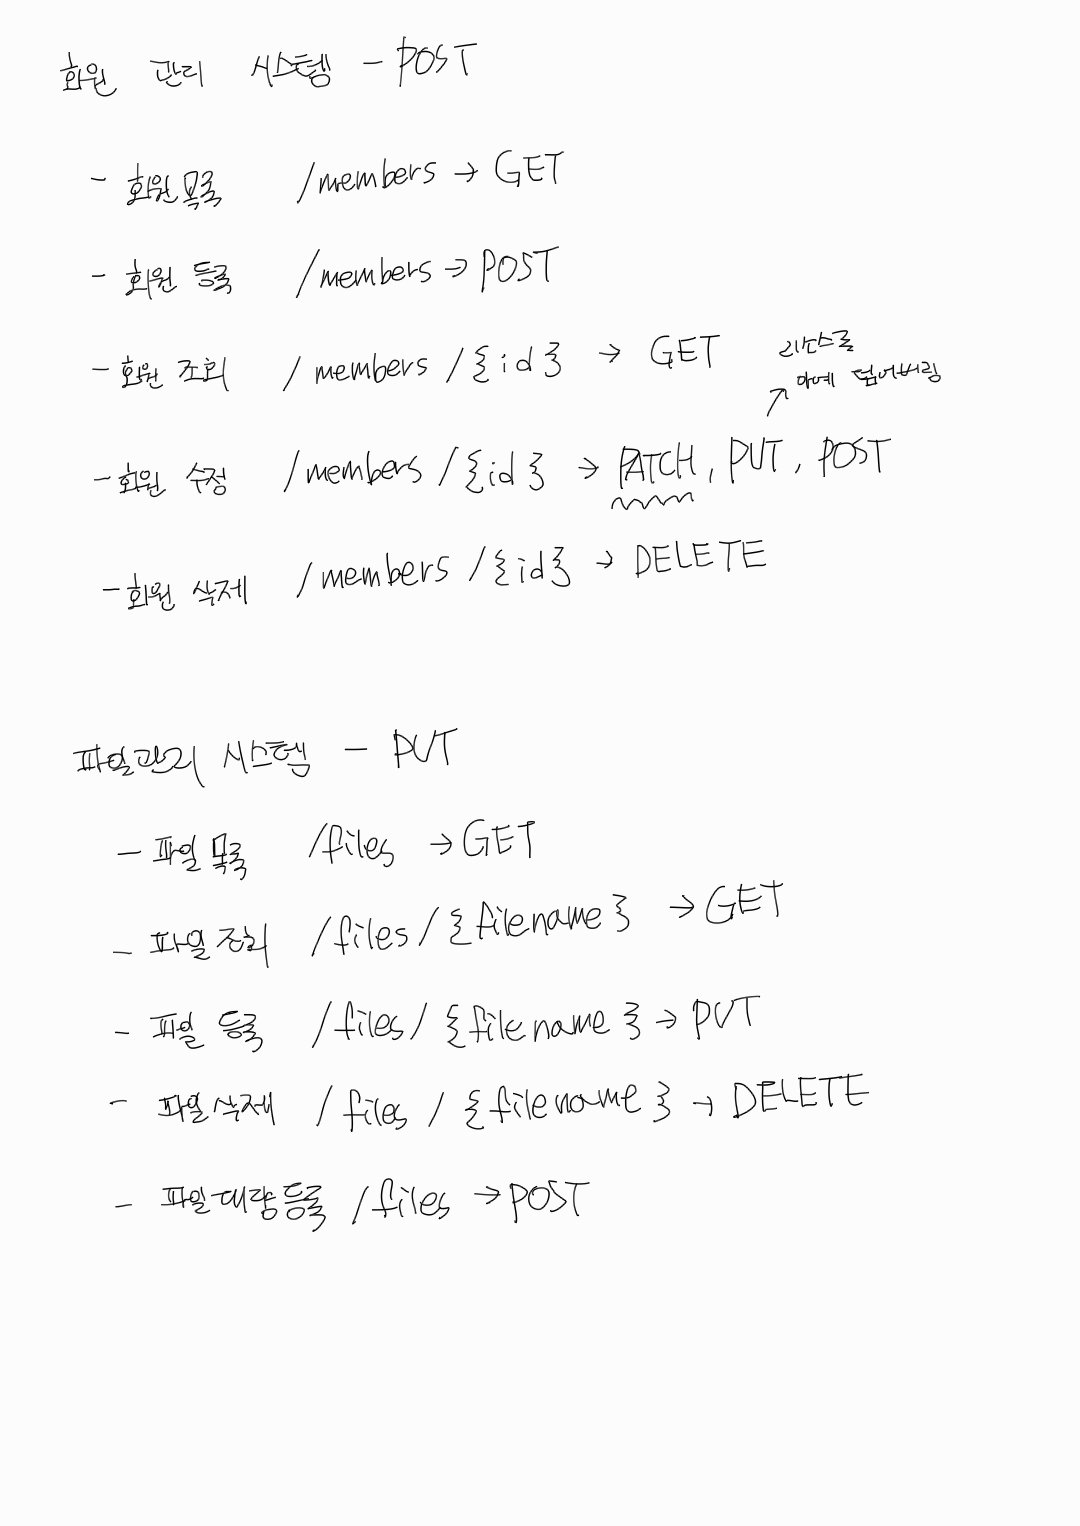 회원 관리 시스템 - POST
- 회원 목록 /members → GET
- 회원 등록 /members → POST
- 회원 조회 /members/{id} → GET
리소스를
아예 덮어버림
- 회원 수정 /members/{id} → PATCH, PUT, POST
- 회원 삭제 /members/{id} → DELETE
파일관리 시스템 - PUT
- 파일 목록 /files → GET
- 파일 조회 /files/{filename} → GET
- 파일 등록 /files/{filename} → PUT
- 파일삭제 /files/{filename} → DELETE
- 파일대량등록 /files → POST